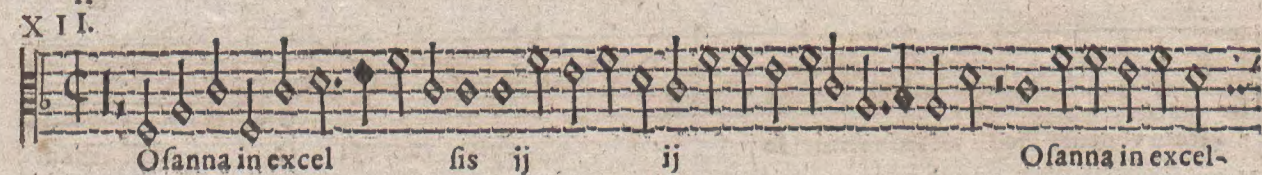 XII.
Oſanna in excel ſis ij ij Oſanna in excel-